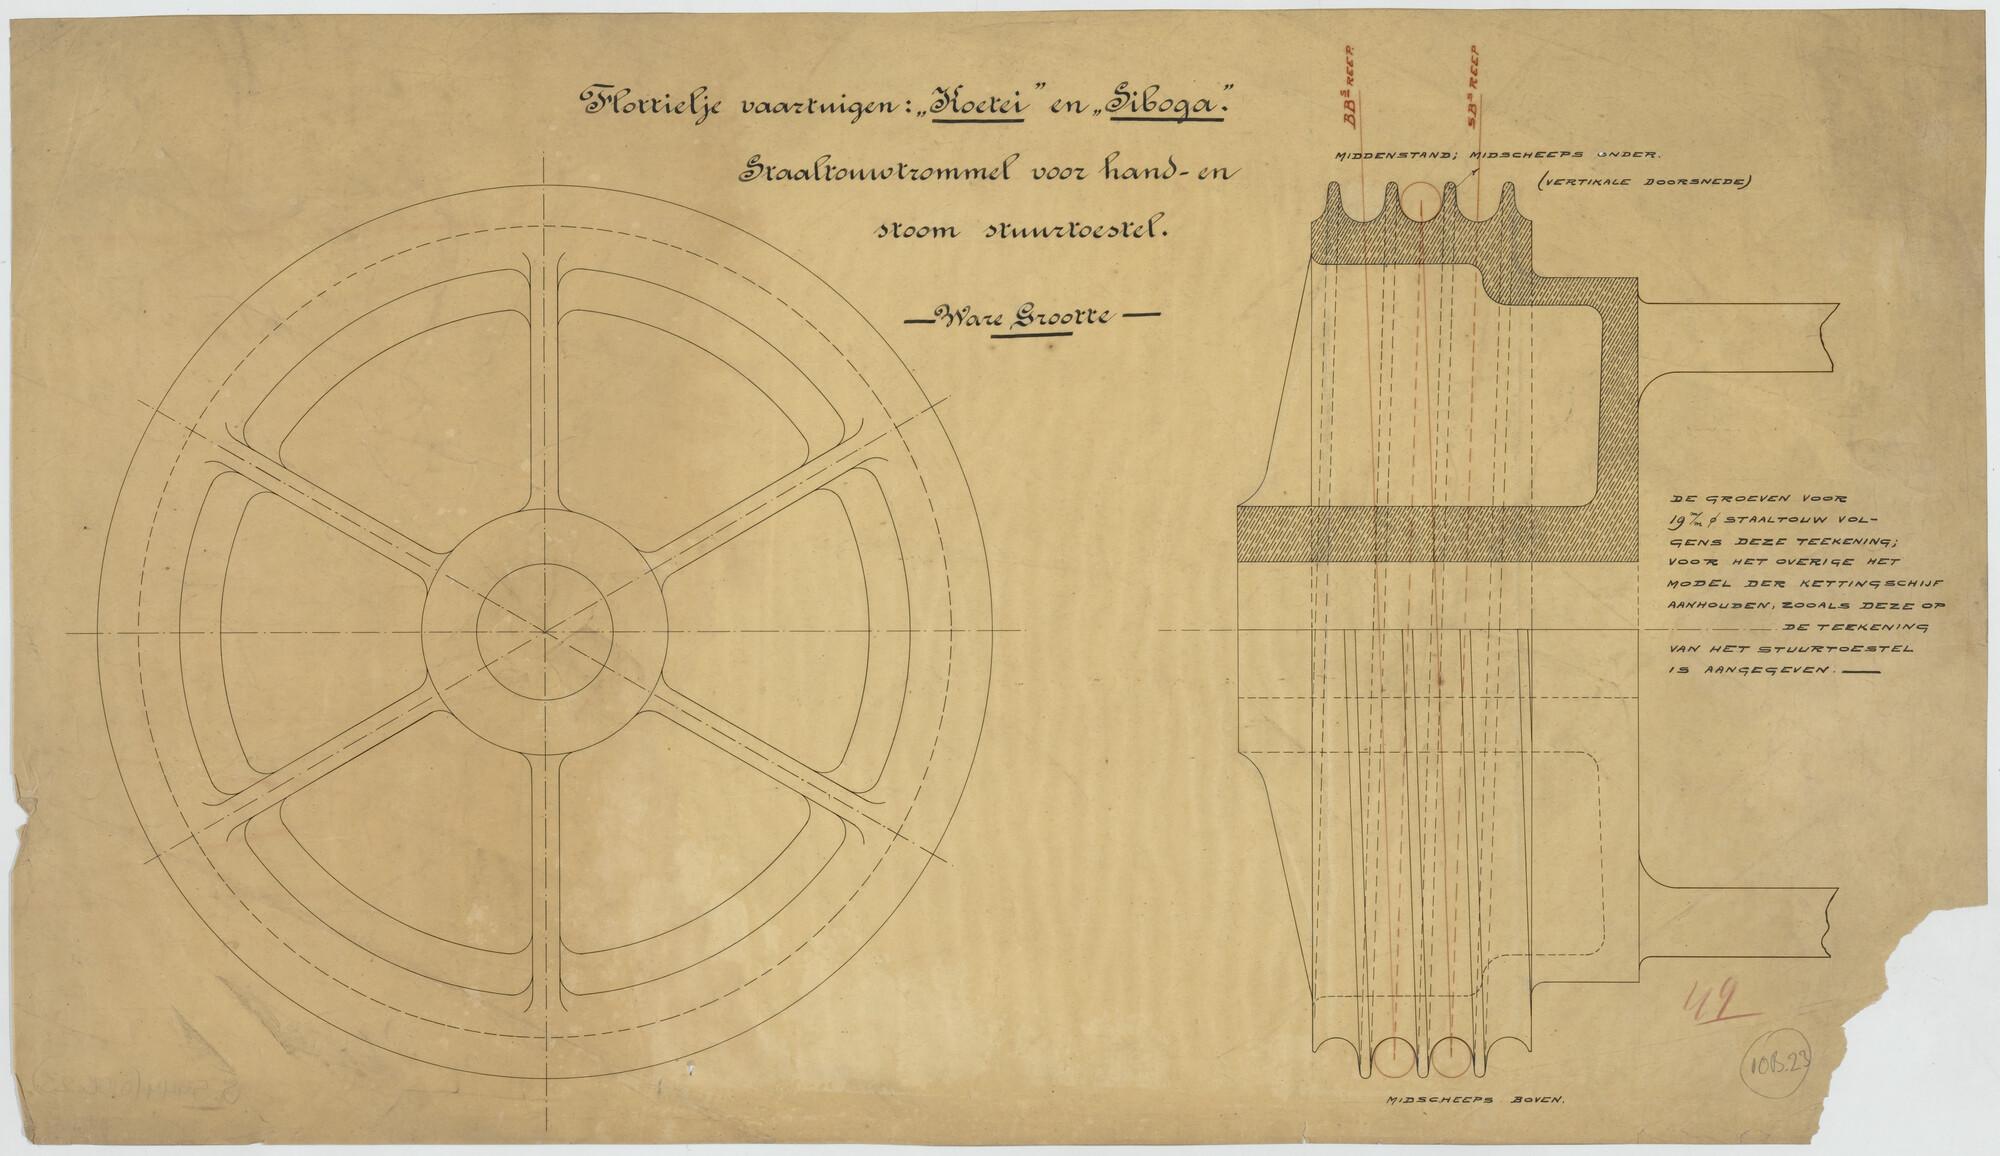 Flottielje vaartuigen: „Koetei” en „Siboga”.
Staaltouwtrommel voor hand- en
stoom stuurtoestel.
— Ware Grootte —
BBˢ REEP.
SBˢ REEP
MIDDENSTAND; MIDSCHEEPS ONDER.
(VERTIKALE DOORSNEDE)
DE GROEVEN VOOR
19 m/m ∅ STAALTOUW VOL-
GENS DEZE TEEKENING;
VOOR HET OVERIGE HET
MODEL DER KETTINGSCHIJF
AANHOUDEN, ZOOALS DEZE OP
DE TEEKENING
VAN HET STUURTOESTEL
IS AANGEGEVEN. —
49
10B.23
MIDSCHEEPS BOVEN.